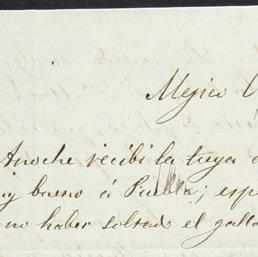 Mejico
Anoche recibi la tuya
y bueno á Puebla; esp
no haber soltado el gall